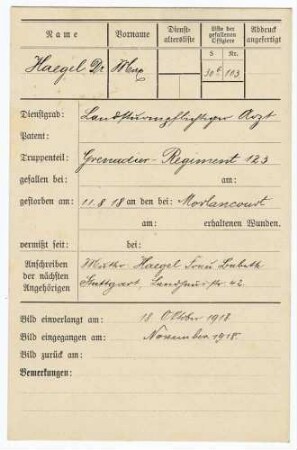 Name Vorname Dienst-
altersliste Liste der
gefallenen
Offiziere Abdruck
angefertigt
S Nr.
Haegel Dr Max 30c 103
Dienstgrad: Landsturmpflichtiger Arzt
Patent:
Truppenteil: Grenadier-Regiment 123
gefallen bei: am:
gestorben am: 11.8.18 an den bei: Morlancourt
am: erhaltenen Wunden.
vermißt seit: bei:
Anschreiben
der nächsten
Angehörigen
Mutter Haegel Frau Babeth
Stuttgart, Landhausstr. 42
Bild einverlangt am: 18 Oktober 1918
Bild eingegangen am: November 1918.
Bild zurück am:
Bemerkungen: